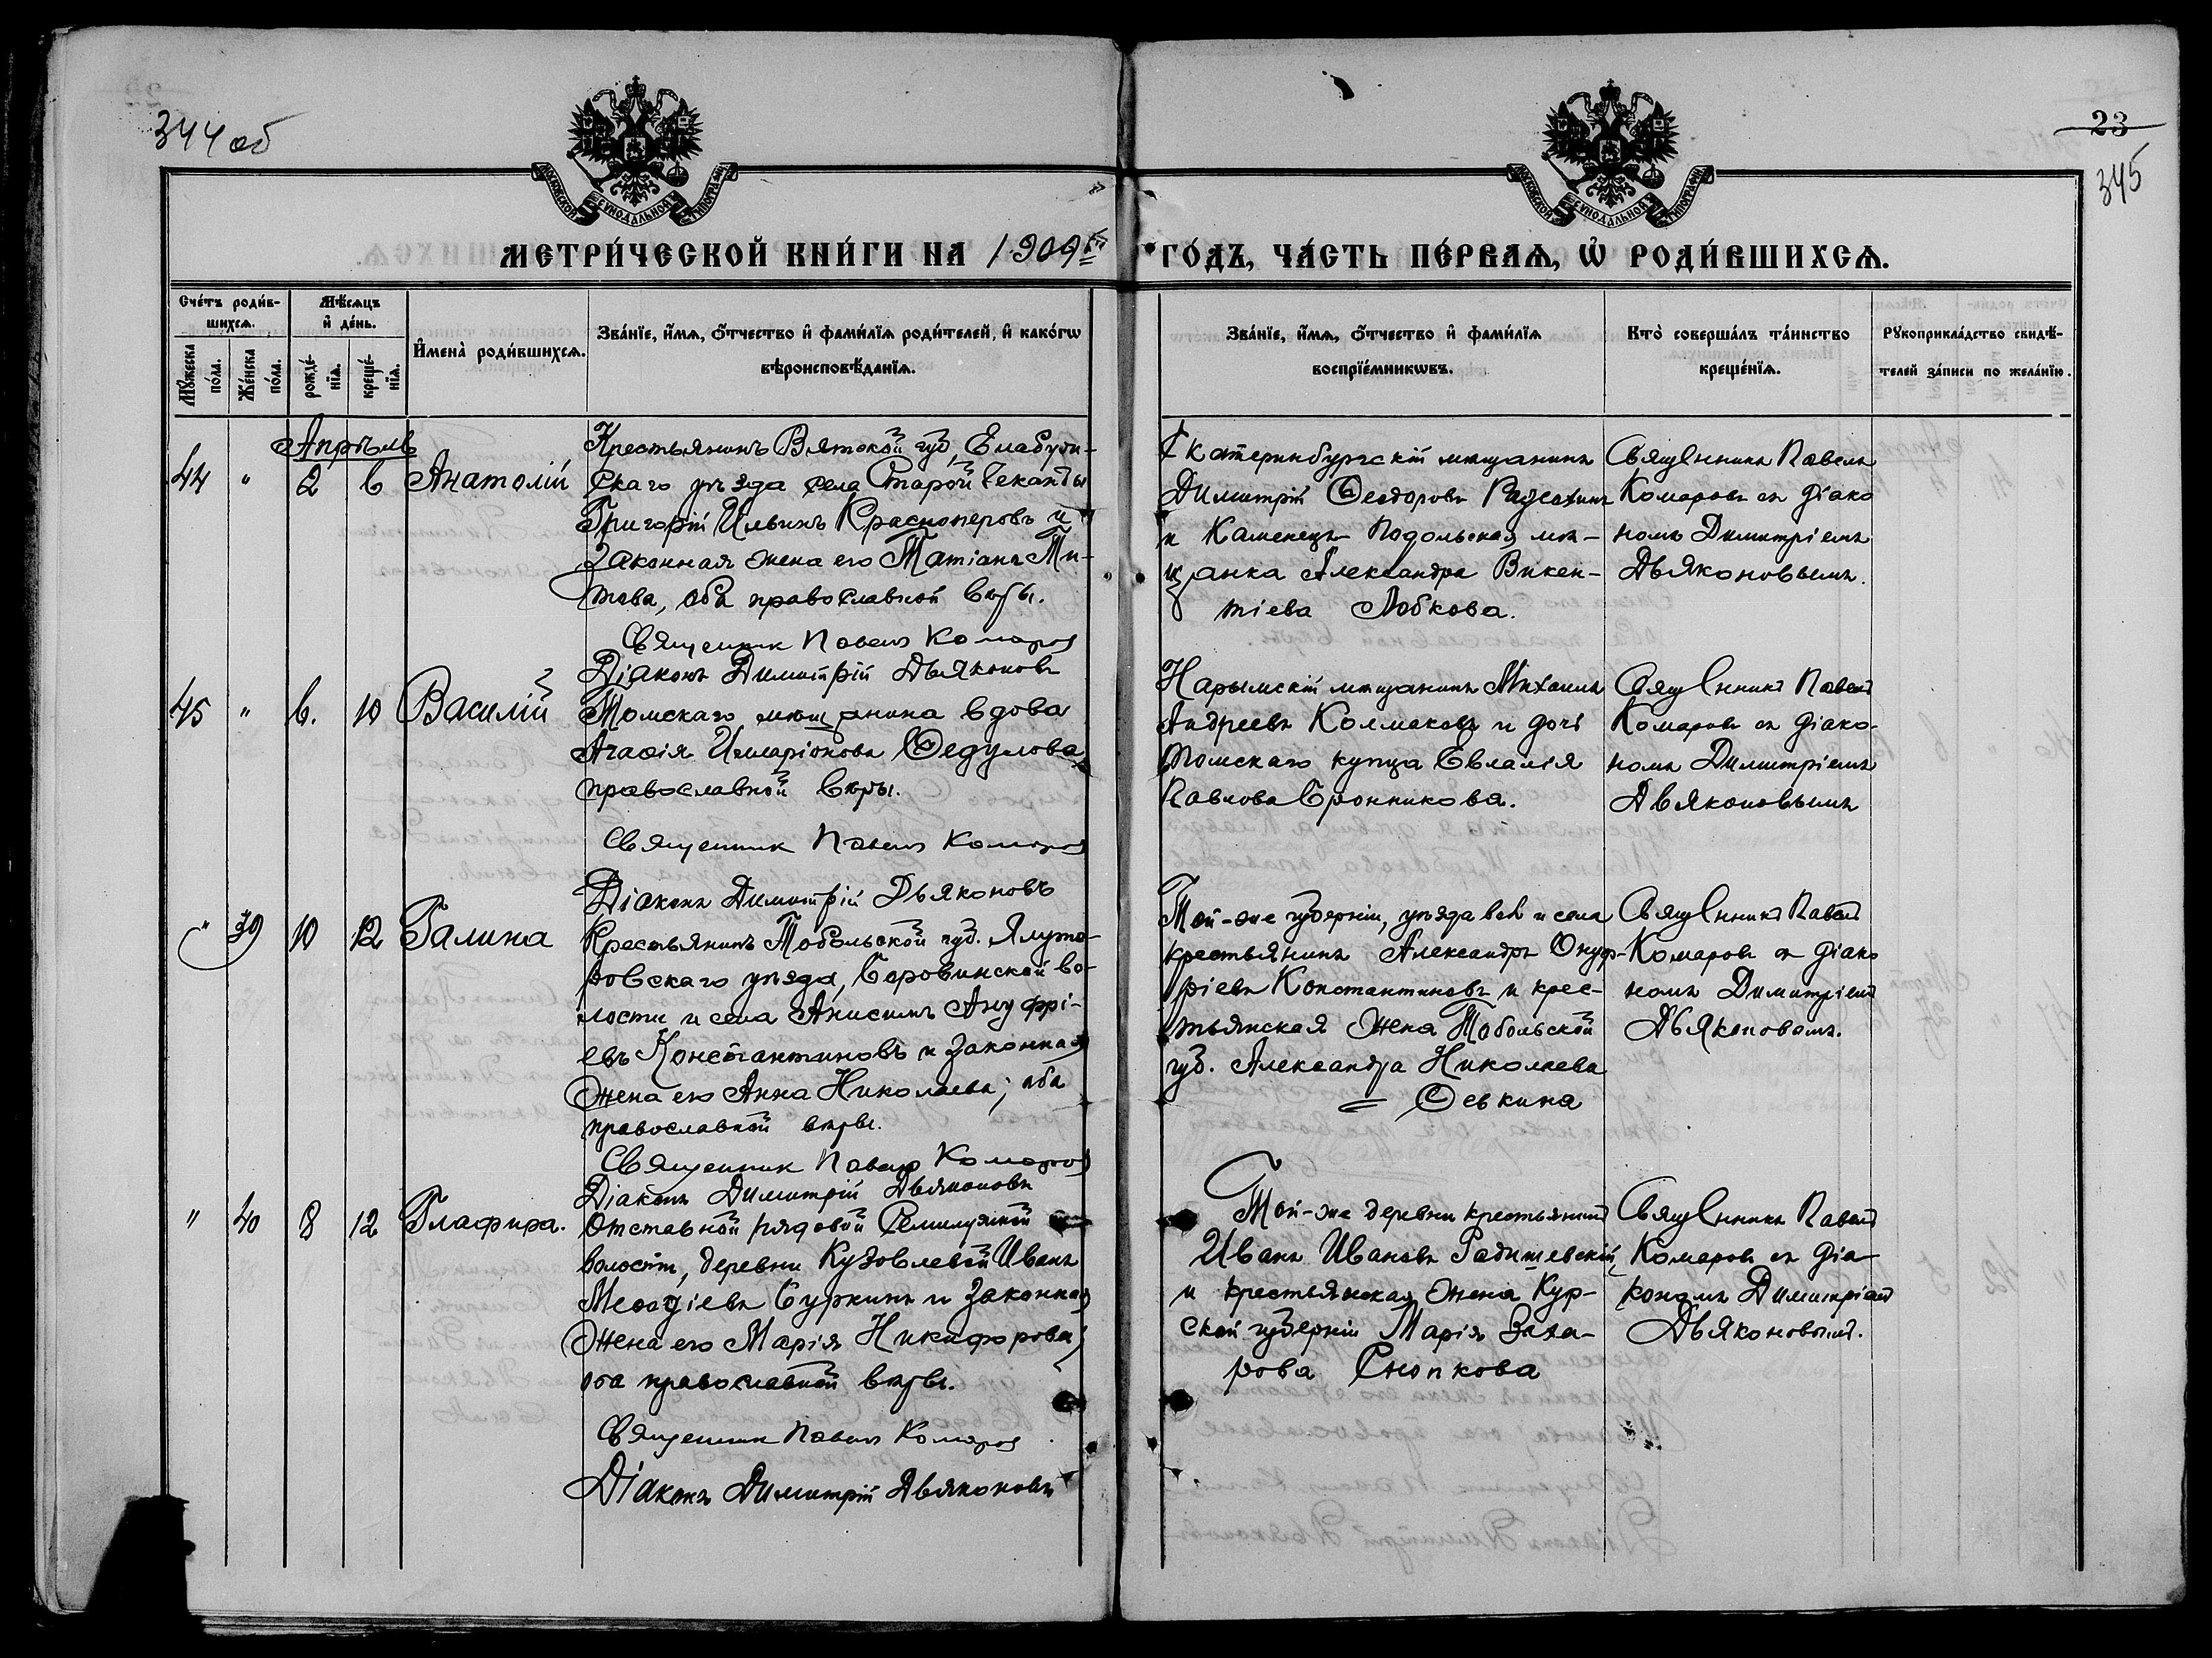 344 об
23
345
МОСКОВСКОЙ СѴНОДАЛЬНОЙ ТИПОГРАФІИ
МОСКОВСКОЙ СѴНОДАЛЬНОЙ ТИПОГРАФІИ
МЕТРИ́ЧЕСКОЙ КНИ́ГИ НА 1909й ГО́ДЪ, ЧА́СТЬ ПЕ́РВАѦ, Ѿ РОДИ́ВШИХСѦ.
Сче́тъ роди́в-
шихсѧ.
Мѣ́сѧцъ
и҆ де́нь.
Мꙋ́жеска по́ла.
Же́нска по́ла.
рожде́-
нїѧ.
креще́-
нїѧ.
И҆мена̀ роди́вшихсѧ.
Зва́нїе, и҆́мѧ, о҆́тчество и҆ фами́лїѧ роди́телей, и҆ како́гѡ
вѣроисповѣ́данїѧ.
Зва́нїе, и҆́мѧ, о҆́тчество и҆ фами́лїѧ
воспрїе́мникѡвъ.
Кто̀ соверша́лъ та́инство
креще́нїѧ.
Рꙋкоприкла́дство свидѣ́-
телей за́писи по жела́нїю.
Апрѣль
44 " 2 6 Анатолій
Крестьянинъ Вятской губ, Елабужи-
скаго уѣзда села Старой Чекалды
Григорій Ильинъ Красноперовъ и
законная жена его Татіана Ти-
това, оба православной вѣры.
Священник Павелъ Комаров
Діаконъ Димитрій Дьяконовъ
Екатеринбургскій мѣщанинъ
Димитрій Ѳеодоровъ
и Каменецъ-Подольская мѣ-
щанка Александра Викен-
тіева Лобкова.
Священникъ Павелъ
Комаровъ съ діако
номъ Димитріемъ
Дьяконовымъ.
45 " 6. 10 Василій
Томскаго мѣщанина вдова
Агаѳія Илларіонова Ѳедулова
православной вѣры.
Священник Павелъ Комаров
Діаконъ Димитрій Дьяконовъ
Нарымскій мѣщанинъ Михаилъ
Андреевъ Колмаковъ и дочь
Томскаго купца Евлалія
Павлова Бронникова.
Священникъ Павелъ
Комаровъ съ діако-
номъ Димитріемъ
Дьяконовымъ
" 39 10 12 Галина
Крестьянинъ Тобольской губ. Ялуто-
ровскаго уѣзда, во-
лости и села Анисимъ Ануфрі-
евъ Константиновъ и законная
жена его Анна Николаева; оба
православной вѣры.
Священник Павелъ Комаров
Діаконъ Димитрій Дьяконовъ
Той-же губерніи, уѣзда вол и села
крестьянинъ Александръ Онуф-
ріевъ Константиновъ и крес-
тьянская жена Тобольской
губ. Александра Николаева
= Ѳевкина
Священникъ Павелъ
Комаровъ съ діако
номъ Димитріемъ
Дьяконовымъ.
" 40 8 12 Глафира.
Отставной рядовой Семилужной
волости, деревни Кузовлевой Иванъ
Меѳодіевъ Суркинъ и законная
жена его Марія Никифорова;
оба православной вѣры.
Священник Павелъ Комаров
Діаконъ Димитрій Дьяконовъ
Той-же деревни крестьянинъ
Иванъ Ивановъ Радишевскій
и крестьянская жена Кур-
ской губерніи Марія Заха-
рова Снопкова
Священникъ Павелъ
Комаровъ съ діа-
кономъ Димитріемъ
Дьяконовымъ.